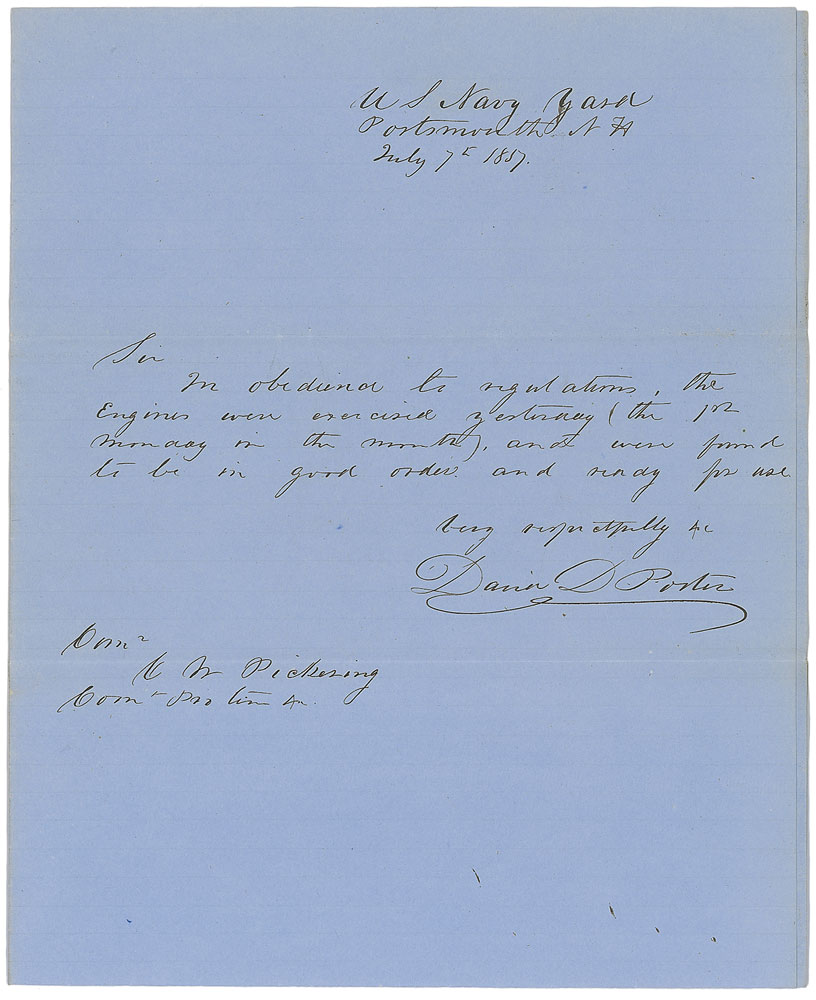 U S Navy Yard
Portsmouth N H
July 7th 1857.
Sir
In obedience to regulations, the
Engines were exercised yesterday (the 1st
Monday in the month), and were found
to be in good order and ready for use
Very respectfully &c
David D Porter
Comr
C W Pickering
Comt Pro tem &c.